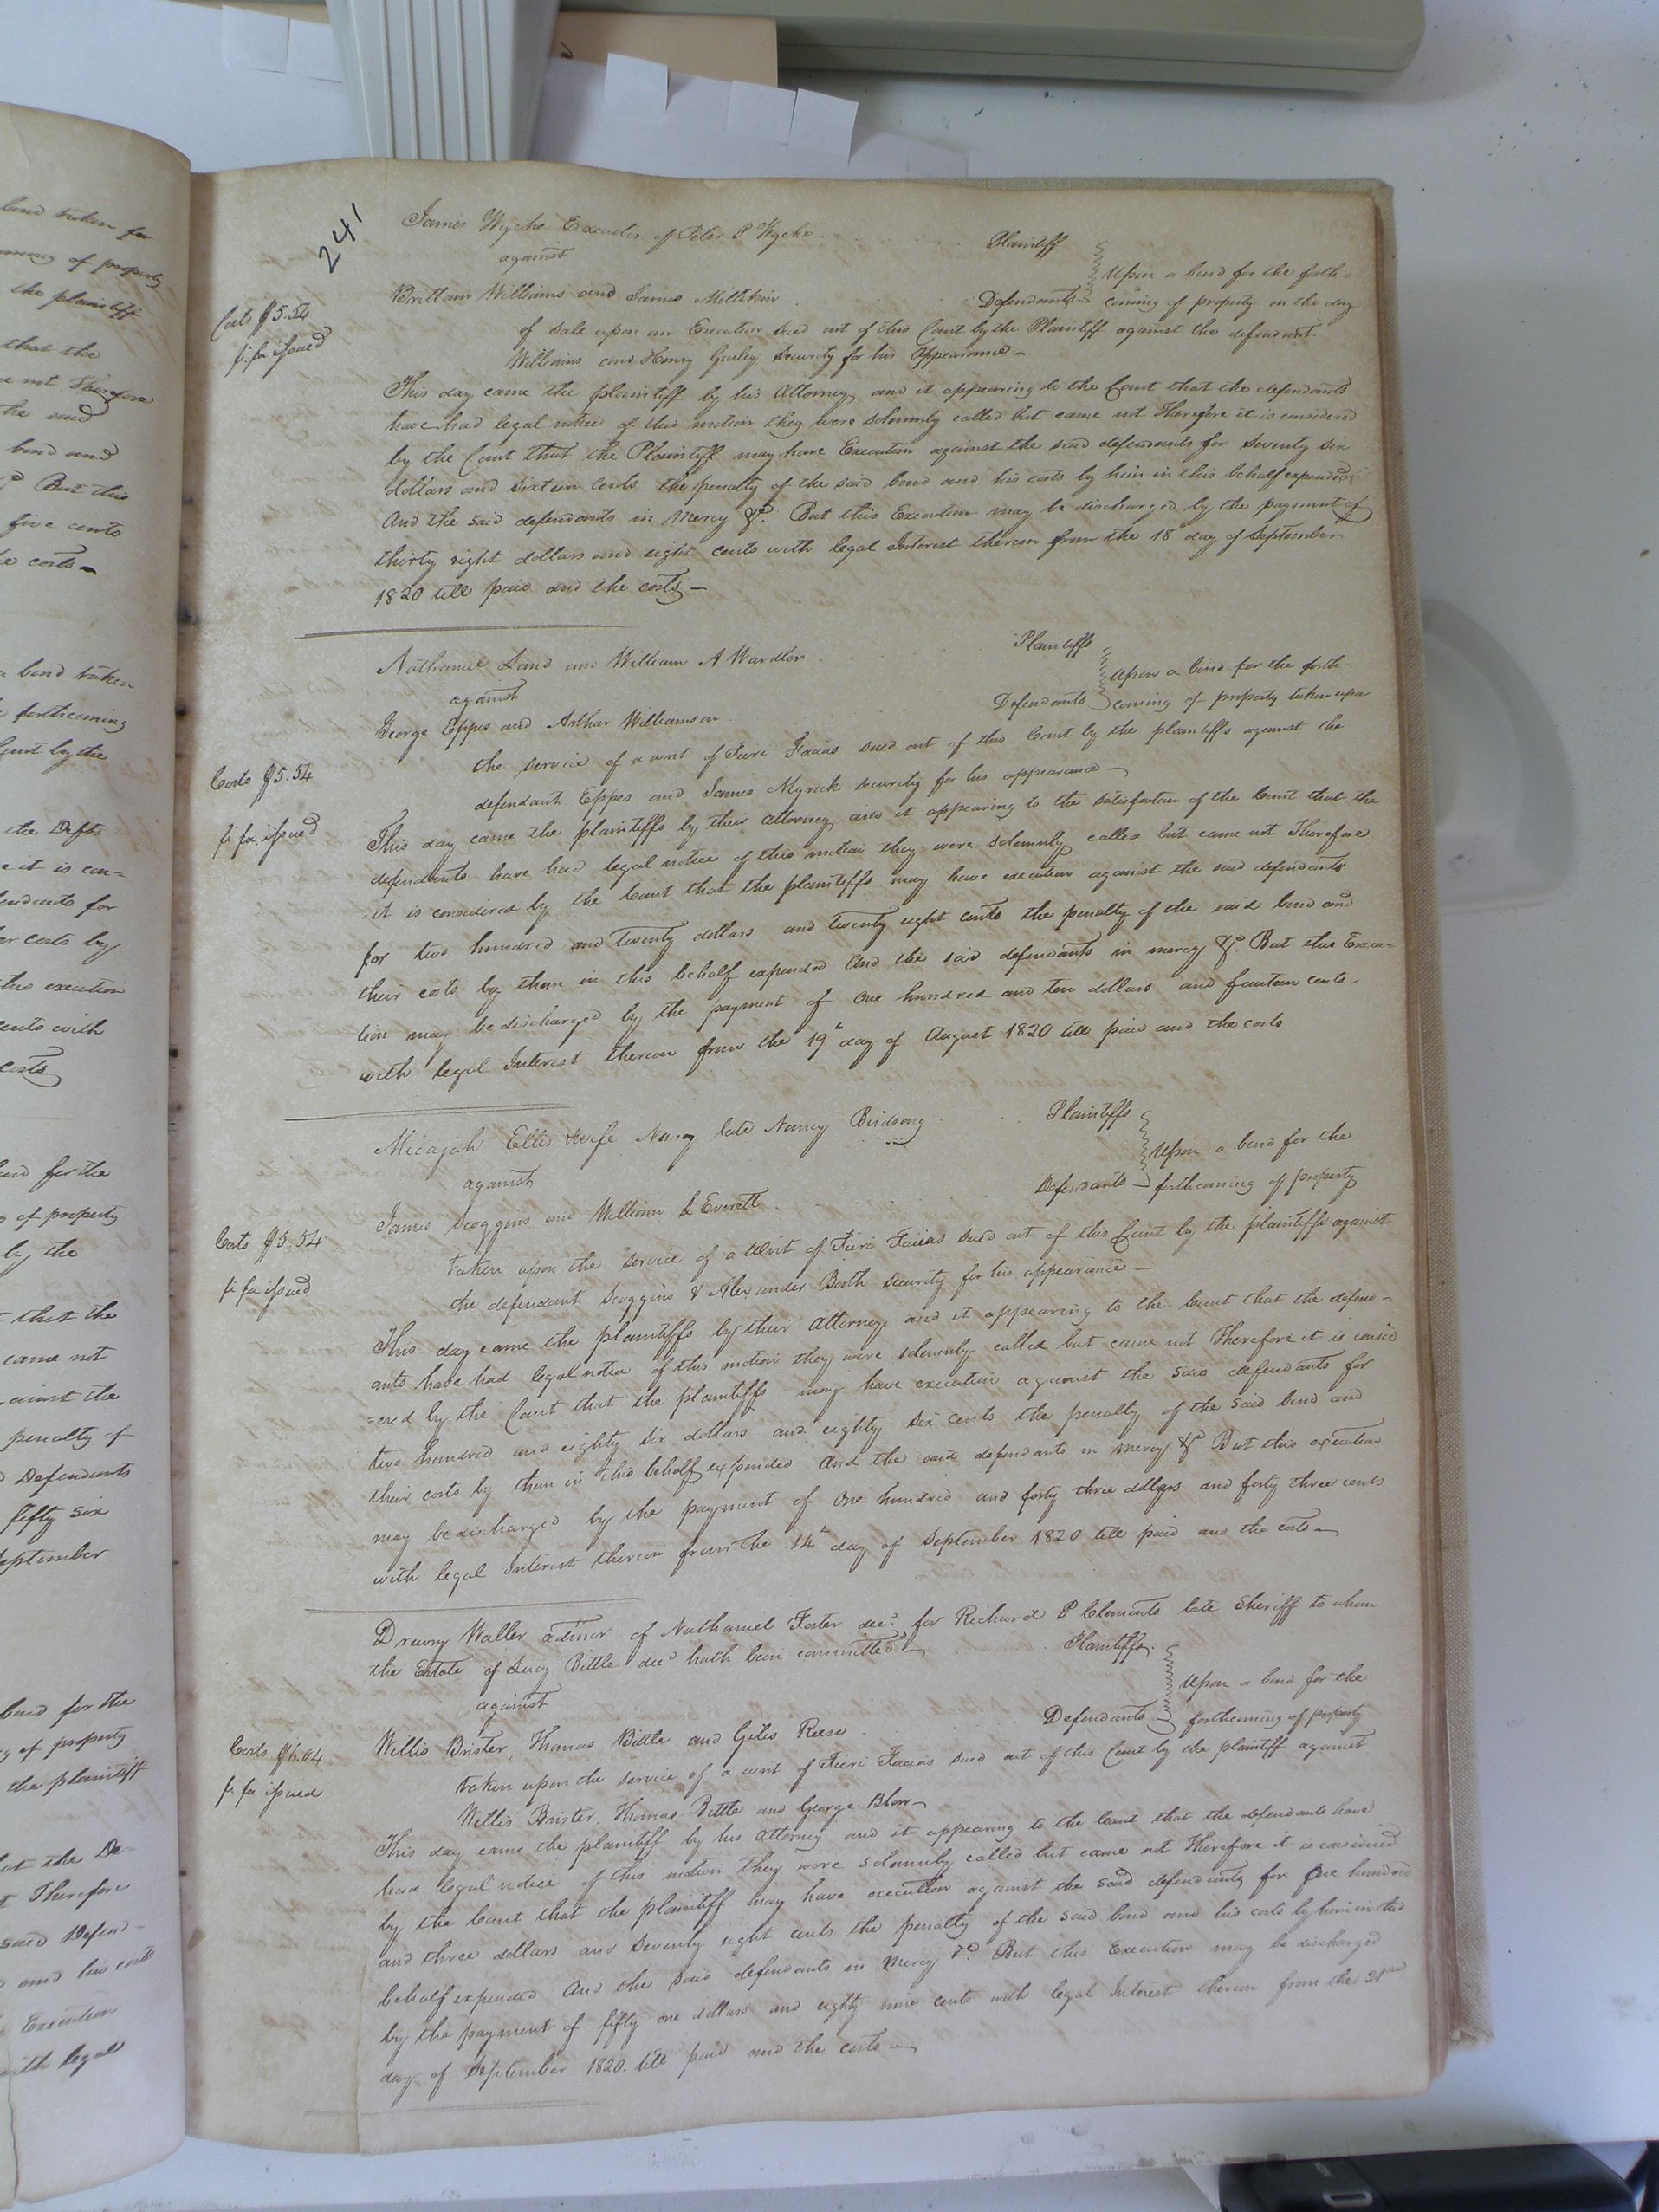 241
James Wyche Executor of Peter P Wyche Plaintiff
against
Upon a bond for the forth-
Brittain Williams and James Millikin Defendants coming of property on the day
of sale upon an Execution sued out of this Court by the Plaintiff against the defendant
Williams and Henry Gurley Security for his Appearance
Costs $5.54
fi fa issued
This day came the plaintiff by his Attorney and it appearing to the Court that the defendants
have had legal notice of this motion they were solemnly called but came not Therefore it is considered
by the Court that the Plaintiff may have Execution against the said defendants for Seventy six
dollars and Sixteen Cents the penalty of the said bond and his costs by him in this behalf expended
And the said defendants in Mercy &c. But this Execution may be discharged by the payment of
thirty eight dollars and eight cents with legal Interest thereon from the 18th day of September
1820 till paid and the costs
Nathaniel Land and William A Wardlor Plaintiffs
against
Upon a bond for the forth-
George Eppes and Arthur Williamson Defendants coming of property taken upon
the service of a writ of Fieri Facias sued out of this Court by the plaintiffs against the
defendant Eppes and James Myrick security for his appearance
Costs $5.54
fi fa issued
This day came the plaintiffs by their attorney and it appearing to the satisfaction of the Court that the
defendants have had legal notice of this motion they were solemnly called but came not Therefore
it is considered by the Court that the plaintiffs may have execution against the said defendants
for two hundred and twenty dollars and twenty eight cents the penalty of the said bond and
their costs by them in this behalf expended And the said defendants in mercy &c. But this Execu=
tion may be discharged by the payment of One hundred and ten dollars and fourteen cents
with legal Interest thereon from the 19th day of August 1820 till paid and the costs
Micajah Ellis & wife Nancy late Nancy Birdsong Plaintiffs
against
Upon a bond for the
James Scoggins and William L Everett Defendants forthcoming of property
taken upon the service of a Writ of Fieri Facias sued out of this Court by the plaintiffs against
the defendant Scoggins & Alexander Booth Security for his appearance
Costs $5.54
fi fa issued
This day came the plaintiffs by their Attorney and it appearing to the Court that the defend=
ants have had legal notice of this motion they were solemnly called but came not Therefore it is consid
=ered by the Court that the plaintiffs may have execution against the said defendants for
two hundred and eighty six dollars and eighty six cents the penalty of the said bond and
their costs by them in this behalf expended And the said defendants in mercy &c But this execution
may be discharged by the payment of One hundred and forty three dollars and forty three cents
with legal interest thereon from the 14th day of September 1820 till paid and the costs
Drewry Waller admor of Nathaniel Foster decd. for Richard P Clements late Sheriff to whom
the Estate of Lucy Bittle decd hath been committed Plaintiffs
against
Upon a bond for the
Willis Brister, Thomas Bittle and Giles Reese Defendants forthcoming of property
taken upon the service of a writ of Fieri Facias sued out of this Court by the plaintiff against
Willis Brister, Thomas Bittle and George Blow
Costs $6.04
fi fa issued
This day came the plaintiff by his attorney and it appearing to the Court that the defendants have
had legal notice of this motion they were solemnly called but came not Therefore it is considered
by the Court that the plaintiff may have execution against the said defendants for One hundred
and three dollars and Seventy eight cents the penalty of the said bond and his costs by him in this
behalf expended And the said defendants in Mercy &c. But this Execution may be discharged
by the payment of fifty one dollars and eighty nine cents with legal Interest thereon from the 21st
day of September 1820. till paid and the costs